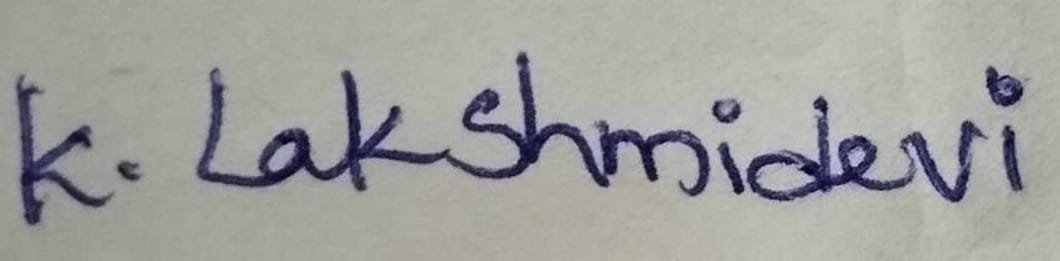 K. Lakshmidevi